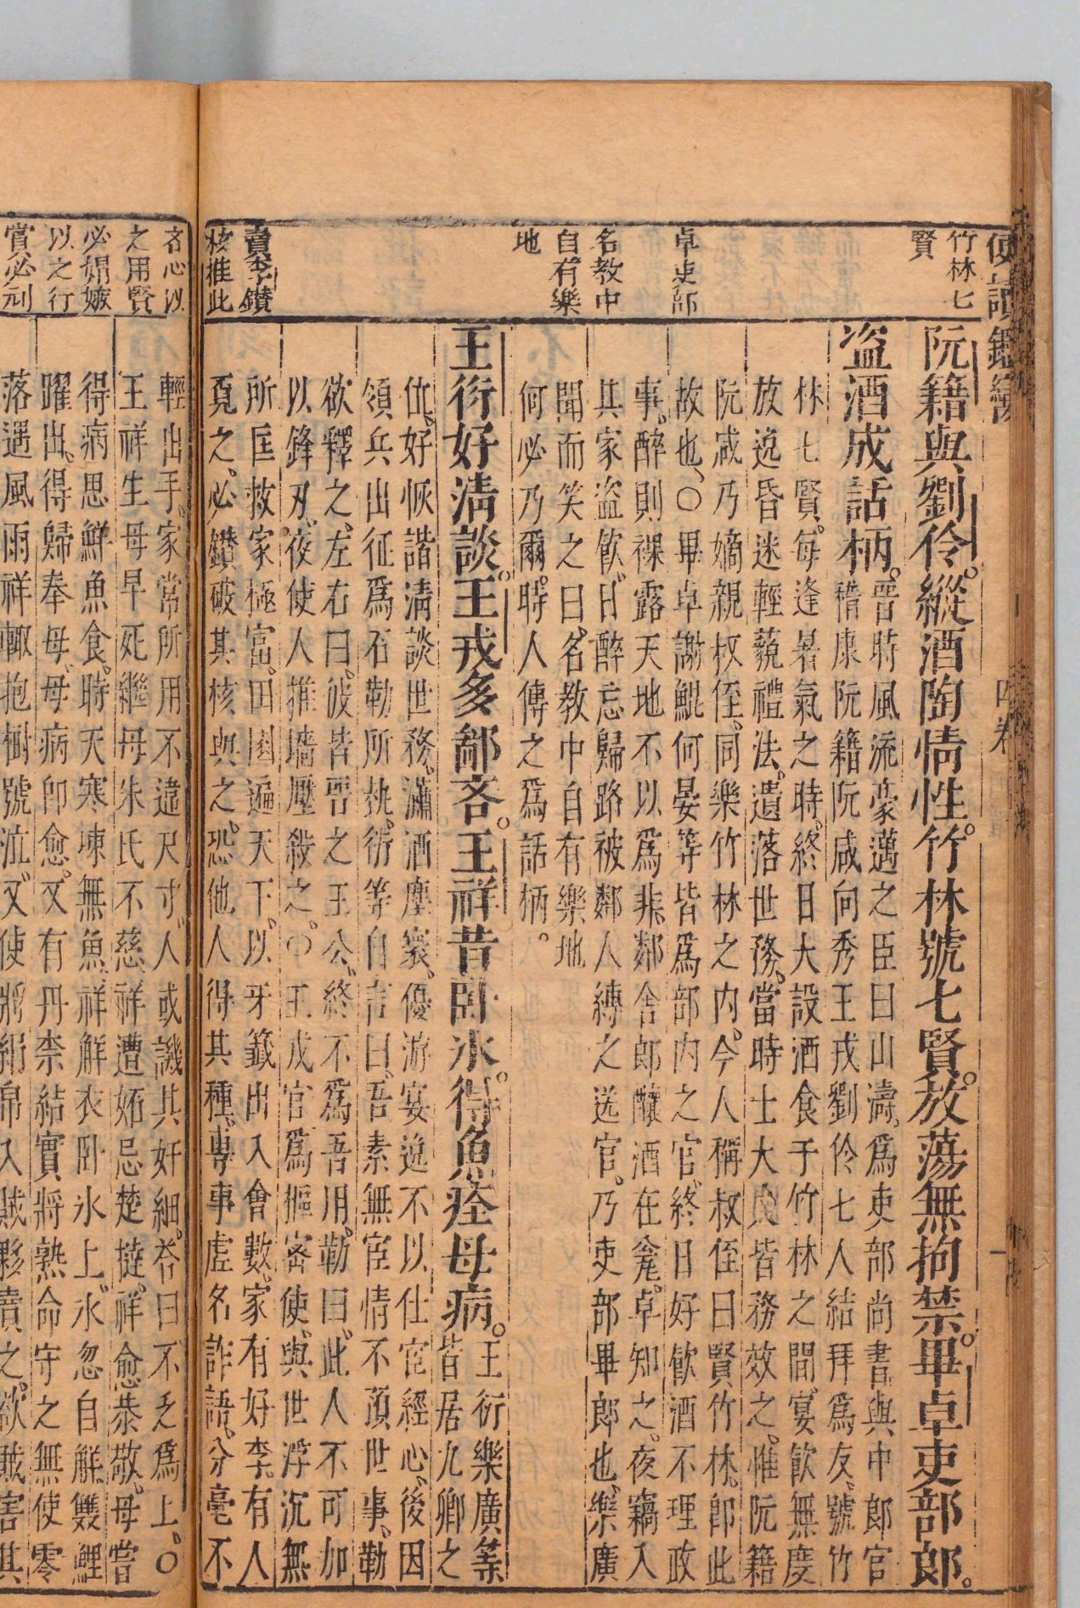 竹林七
賢
卓吏部
名教中
自有樂
地
賣李鑽
核推此
阮籍與劉伶縱酒陶情性竹林號七賢放蕩無拘禁畢卓吏部郎
盗酒成話柄晋時風流豪邁之臣曰山濤爲吏部尚書與中郎官
嵇康阮籍阮咸向秀王戎劉伶七人結拜爲友號竹
林七賢每逢暑氣之時終日大設酒食于竹林之間宴飲無度
放逸昏迷輕藐禮法遺落世務當時士大夫皆務效之惟阮籍
阮咸乃嫡親叔侄同樂竹林之内今人稱叔侄曰賢竹林卽此
故也〇畢卓謝鯤何晏等皆爲部内之官終日好飲酒不理政
事醉則裸露天地不以爲非鄰舍郎釀酒在瓮卓知之夜竊入
其家盗飲日醉忘歸路被鄰人縛之送官乃吏部畢郎也樂廣
聞而笑之曰名教中自有樂地
何必乃爾時人傳之爲話柄。
王衍好清談王戎多鄙吝王祥昔卧氷得魚痊母病王衍樂廣等
皆居九卿之
位好恢諧清談世務瀟洒塵寰優游宴逸不以仕宦經心後因
領兵出征爲石勒所执衍等自言曰吾素無宦情不預世事勒
欲釋之左右曰彼皆晋之王公終不爲吾用勒曰此人不可加
以鋒刃夜使人推墻壓殺之〇王戎官爲樞密使與世浮沉無
所匡救家極富田園遍天下以牙籖出入會數家有好李有人
覓之必鑽破其核與之恐他人得其種專事虚名詐語分毫不
吝心以
之用賢
必娼嫉
以之行
賞必刓
輕出手家常所用不違尺寸人或譏其奸細答曰不乏爲上〇
王祥生母早死繼母朱氏不慈祥遭妬忌楚撻祥愈恭敬母嘗
得病思鮮魚食時天寒凍無魚祥解衣卧氷上氷忽自解雙鯉
躍出得歸奉母母病卽愈又有丹柰結實將熟命守之無使零
落遇風雨祥輙抱樹號泣又使將絹帛入賊夥賣之欲賊害其